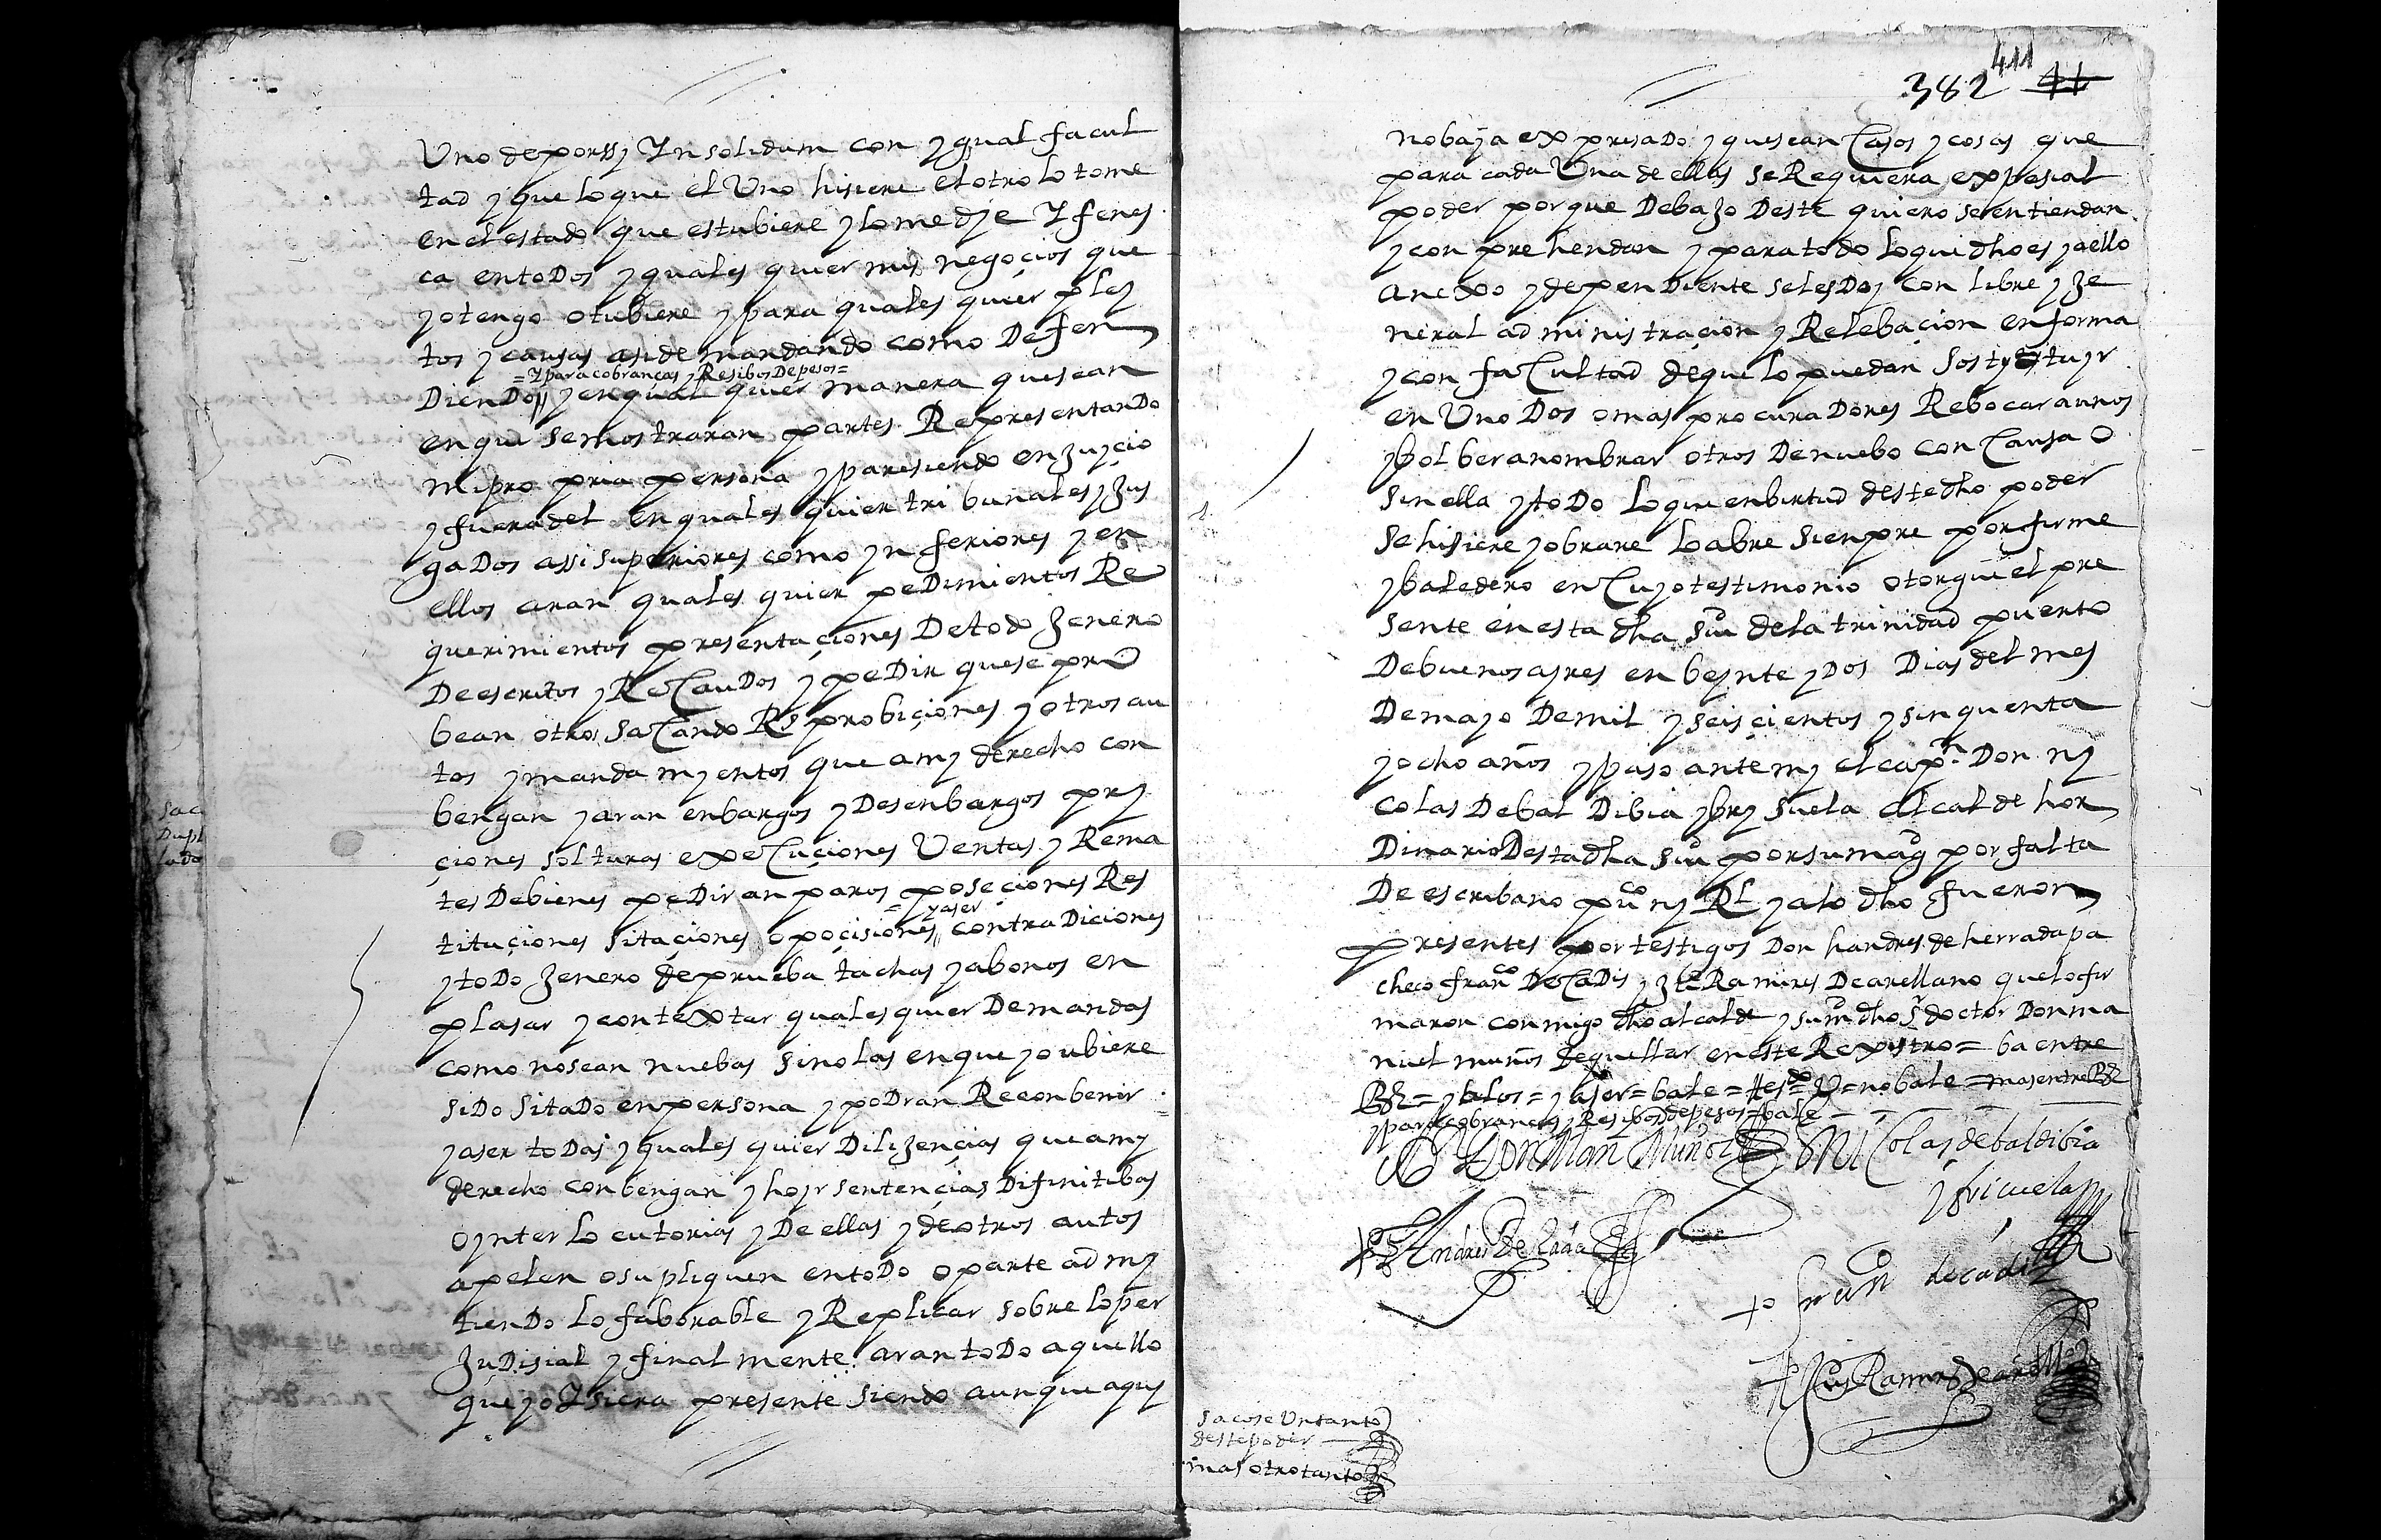 Uno de por ssy Yn solidum con ygual facul
tad y que lo que el Uno hisiere el otro lo tome
en el estado que estubiere y lo medje Y fenes
ca en toDos y quales quier mis negoçios que
yo tengo o tubiere y para quales quier pley
tos y causas asi de mandando como Defen
=Y para cobranças y Resibos De pesos=
DienDo // y en qual quier manera que sean
en que se mostraran partes RepresentanDo
mi pro pria persona y paresiendo en Juycio
y fuera del en quales quier tribunales y Jus
gaDos assi superiores como ynferiores y en
ellos aran quales quier peDimientos Re
querimientos presentaçiones De todo Jenero
De escritos y RecauDos y peDir que se pro
bean otros sacando Rs probiçiones y otros au
tos y manda myentos que a my derecho con
bengan y aran enbargos y Desenbargos pry
çiones solturas execuçiones Ventas y Rema
tes De bienes peDir an paros poseçiones Res
= y aser
tituçiones sitaçiones opoçisiones // contra Diciones
y toDo Jenero de prueba tachas y abonos en
plasar y contextar quales quier Demandas
como no sean nuebas sino las en que yo ubiere
siDo sitaDo en persona y poDran Reconbenir
y aser toDas y quales quier Dilijençias que a my
derecho conbengan y hoyr sentençias Difinitibas
o ynter lo cutorias y De ellas y de otros autos
apelen o supliquen en toDo o parte adº my
tienDo lo faborable y Replicar sobre lo per
JuDisial y final mente aran toDo aquello
que yo Ysiera presente siendo aunque aquy
382 411
no baja expresaDo y que sean Casos y cosas que
para cada Una de ellas se Requiera espesial
poder por que Debajo Deste quiero se entiendan
y con prehendan y para todo lo que dho es y a ello
anexo y dependiente se les Doy con libre y Je
neral administraçion y Relebaçion en forma
y con facultad de que lo puedan sostytuyr
en Uno Dos o mas procuraDores Rebocar a unos
y bolber a nombrar otros De nuebo con Causa o
sin ella y toDo lo que en birtud deste dho poder
se hisiere y obrare lo abre sienpre por firme
y baledero en Cuyo testimonio otorgue el pre
sente en esta dha Ciud de la trinidad puerto
De buenos ayres en beynte y Dos Dias del mes
De mayo De mil y seisçientos y sinquenta
y ocho años y paso ante my el capn Don ny
colas De balDibia y bry suela alcalde hor
Dinario Desta dha Ciud por su magd por falta
De escribano puco ny Rl y a lo dho fueron
presentes por testigos Don handres de herrada pa
checo franco De CaDis y Jte Ramires De arellano que lo fir
maron conmigo dho alcalde y su md dho sr doctor Don ma
nuel muños de quellar en este Rexistro = ba entre
Rs = y belos = y aser = bale = tdo = no bale = mas entre Rs
y para cobranças y Resibos de pesos = bale
Dr Don Man Muñoz
Nicolas de baldibia
y briçuela
Andres de Rada
franco de cadis
Ramires de arellano
sacose Un tanto
deste poder
mas otro tanto